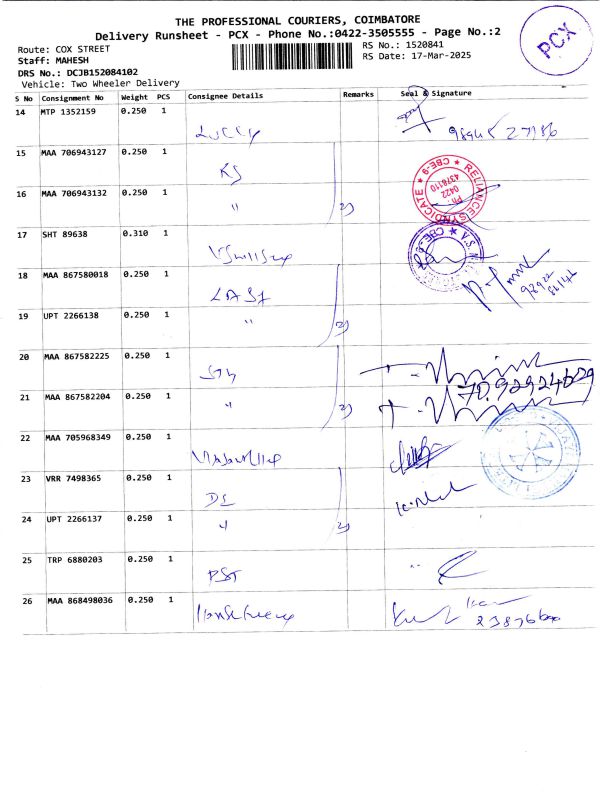 THE PROFESSIONAL COURIERS, COIMBATORE
Delivery Runsheet - PCX - Phone No.:0422-3505555 - Page No.:2
Route: COX STREET
RS No.: 1520841
Staff: MAHESH
RS Date: 17-Mar-2025
DRS No.: DCJB152084102
Vehicle: Two Wheeler Delivery
PCX
S No Consignment No Weight PCS Consignee Details Remarks Seal & Signature
14 MTP 1352159 0.250 1
Luccy
15 MAA 706943127 0.250 1
KS
16 MAA 706943132 0.250 1
" 2)
RELIANCE SYNDICATE ★ CBE-9 ★
Ph: 0422 4378110
17 SHT 89638 0.310 1
18 MAA 867580018 0.250 1
19 UPT 2266138 0.250 1
" 2)
20 MAA 867582225 0.250 1
21 MAA 867582204 0.250 1
" 2)
22 MAA 705968349 0.250 1
23 VRR 7498365 0.250 1
DS
24 UPT 2266137 0.250 1
" 2)
25 TRP 6880203 0.250 1
PST
26 MAA 868498036 0.250 1